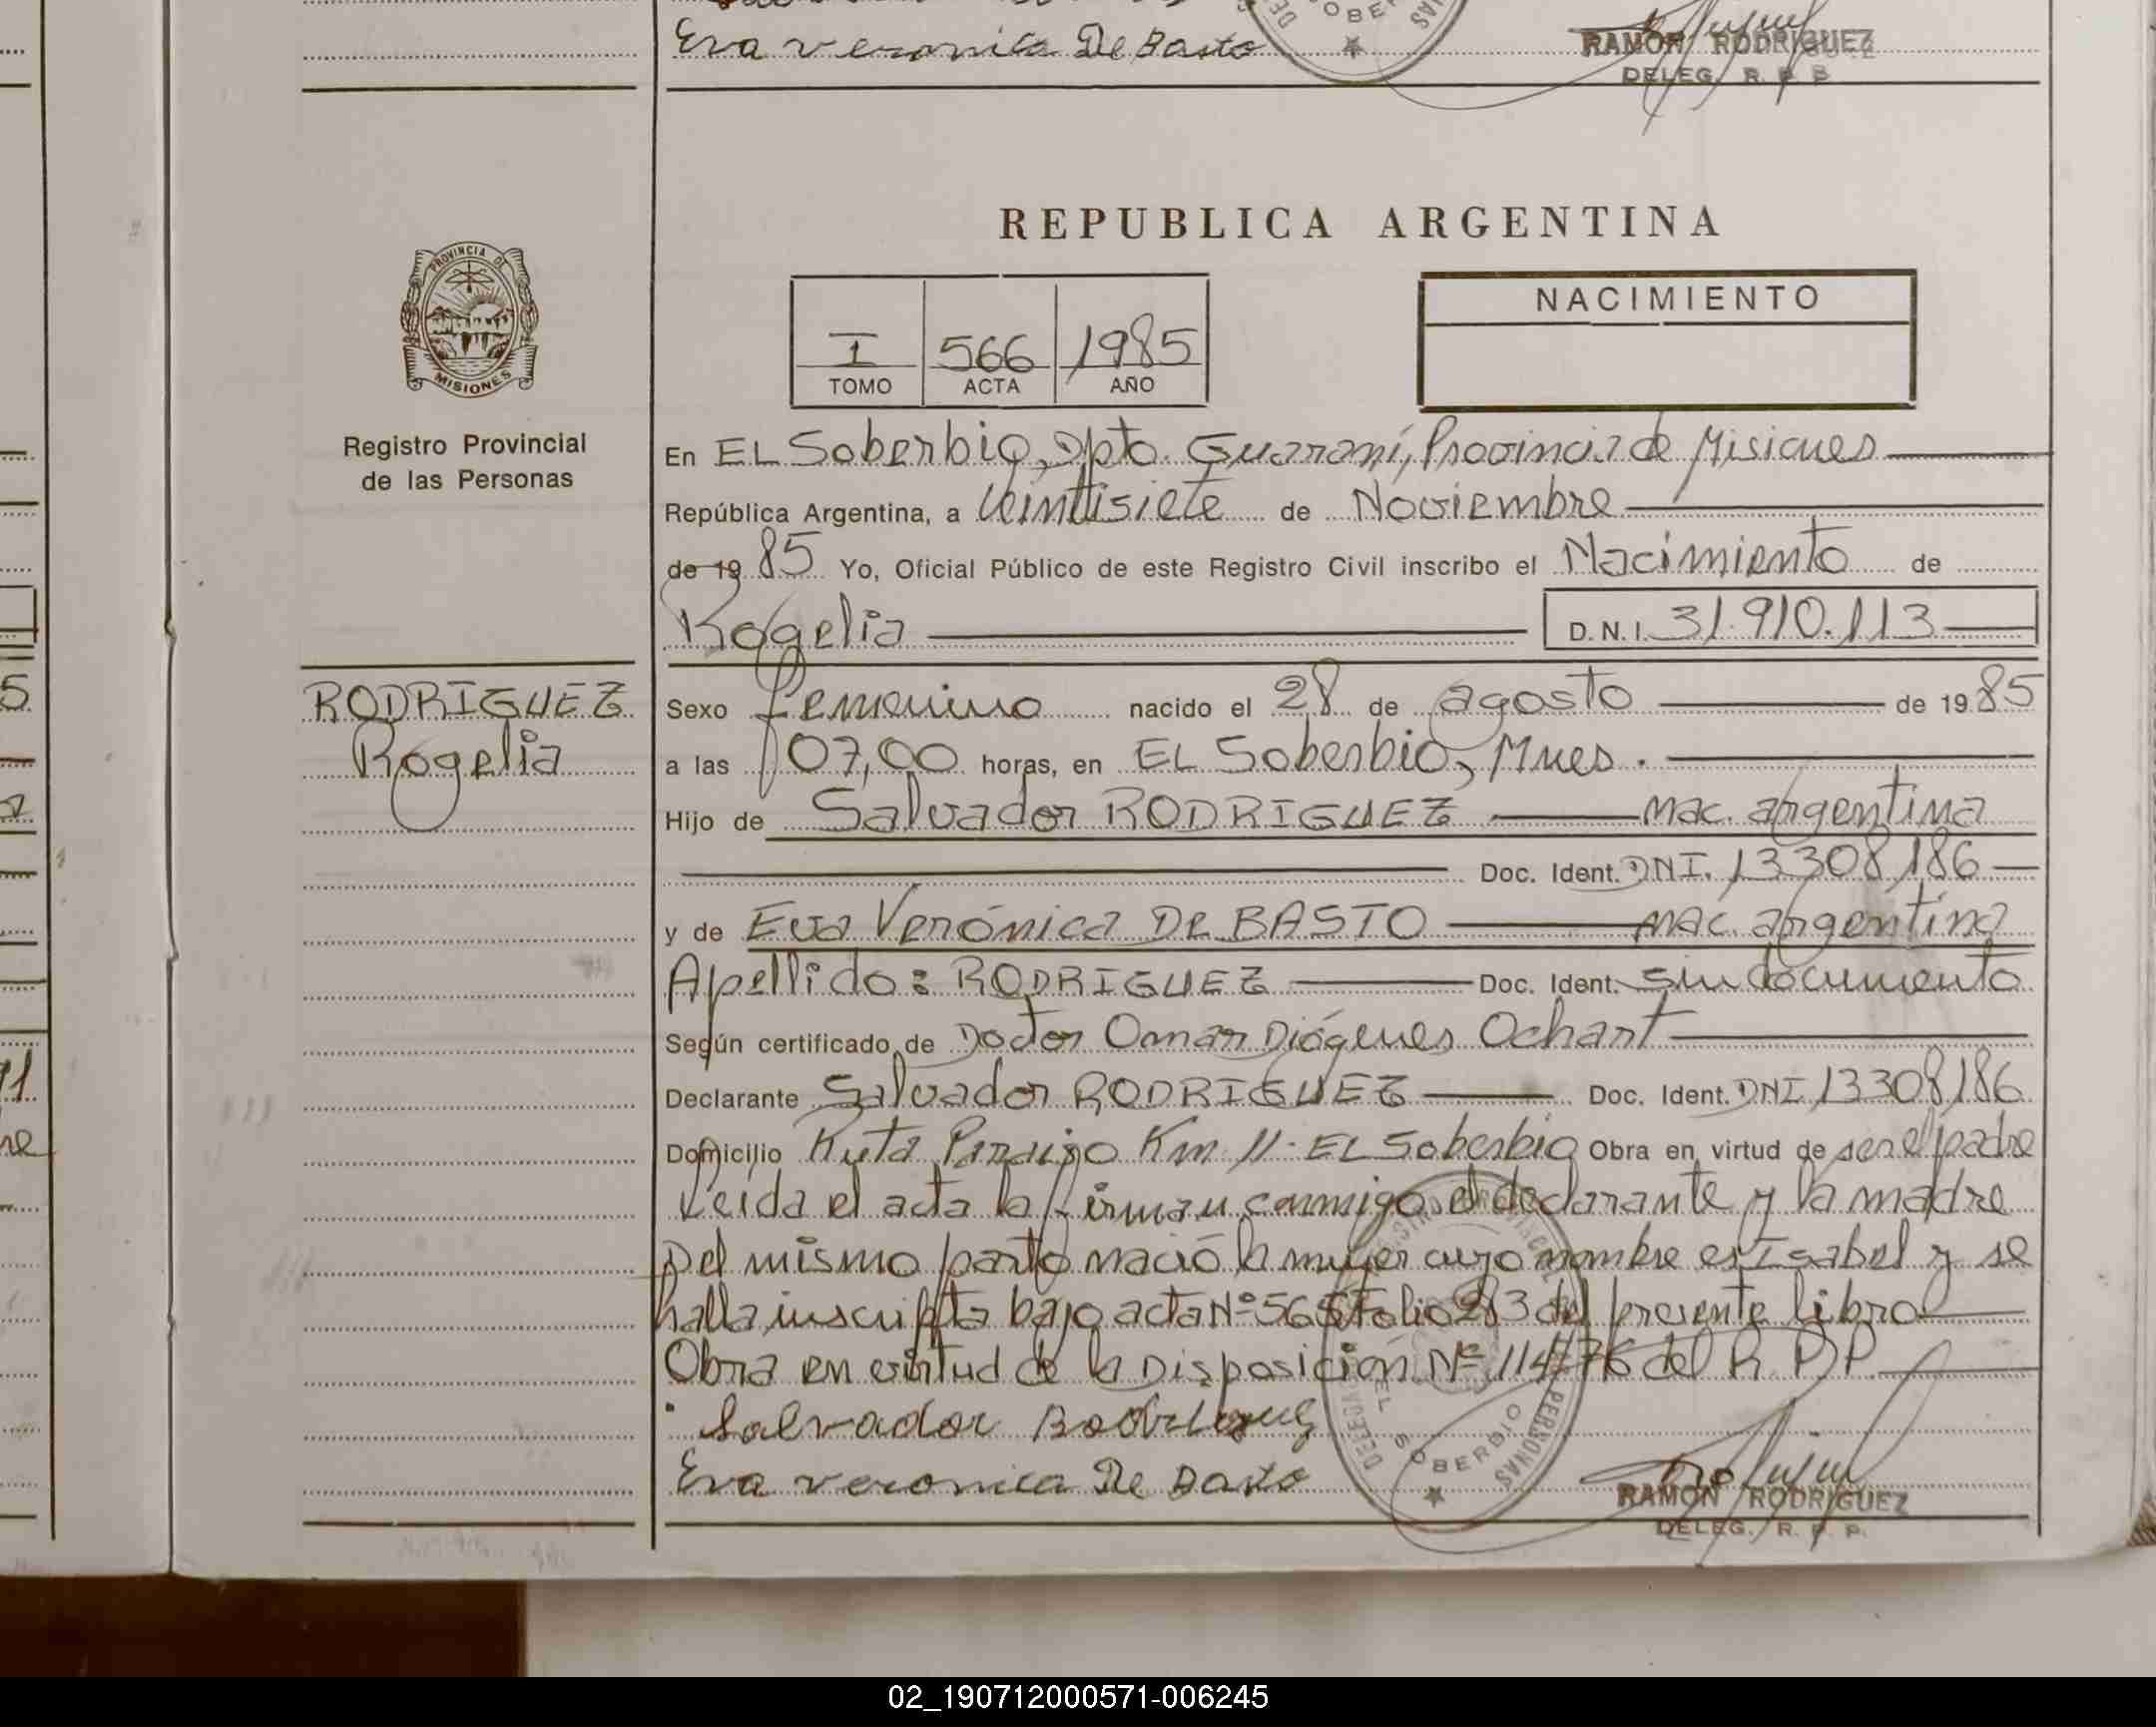 Eva veronica De Basto
RAMON RODRIGUEZ
DELEG. R. P. P.
REPUBLICA ARGENTINA
PROVINCIA DE
MISIONES
Registro Provincial
de las Personas
I 566 1985
TOMO ACTA AÑO
NACIMIENTO
En EL Soberbio, Dpto. Guaraní, Provincia de Misiones
República Argentina, a Veintisiete de Noviembre
de 19 85 Yo, Oficial Público de este Registro Civil inscribo el Nacimiento de
Rogelia D.N.I. 31.910.113
RODRIGUEZ
Rogelia
Sexo femenino nacido el 28 de agosto de 19 85
a las 07,00 horas, en EL Soberbio, Mnes.
Hijo de Salvador RODRIGUEZ nac. argentina
Doc. Ident. DNI. 13308186
y de Eva Verónica De BASTO nac. argentina
Apellido: RODRIGUEZ Doc. Ident. sin documento
Según certificado de Doctor Omar Diógenes Ochart
Declarante Salvador RODRIGUEZ Doc. Ident. DNI 13308186
Domicilio Ruta Paraiso Km 11 - EL Soberbio Obra en virtud de ser el padre
Leída el acta la firman conmigo el declarante y la madre
Del mismo parto nació la mujer cuyo nombre es Isabel y se
halla inscripta bajo acta Nº 565 Folio 283 del presente libro
Obra en virtud de la Disposición Nº 114/76 del R. P. P.
Salvador Rodriguez
Eva veronica De Basto
EL SOBERBIO
PERSONAS
RAMON RODRIGUEZ
DELEG. R. P. P.
02_190712000571-006245